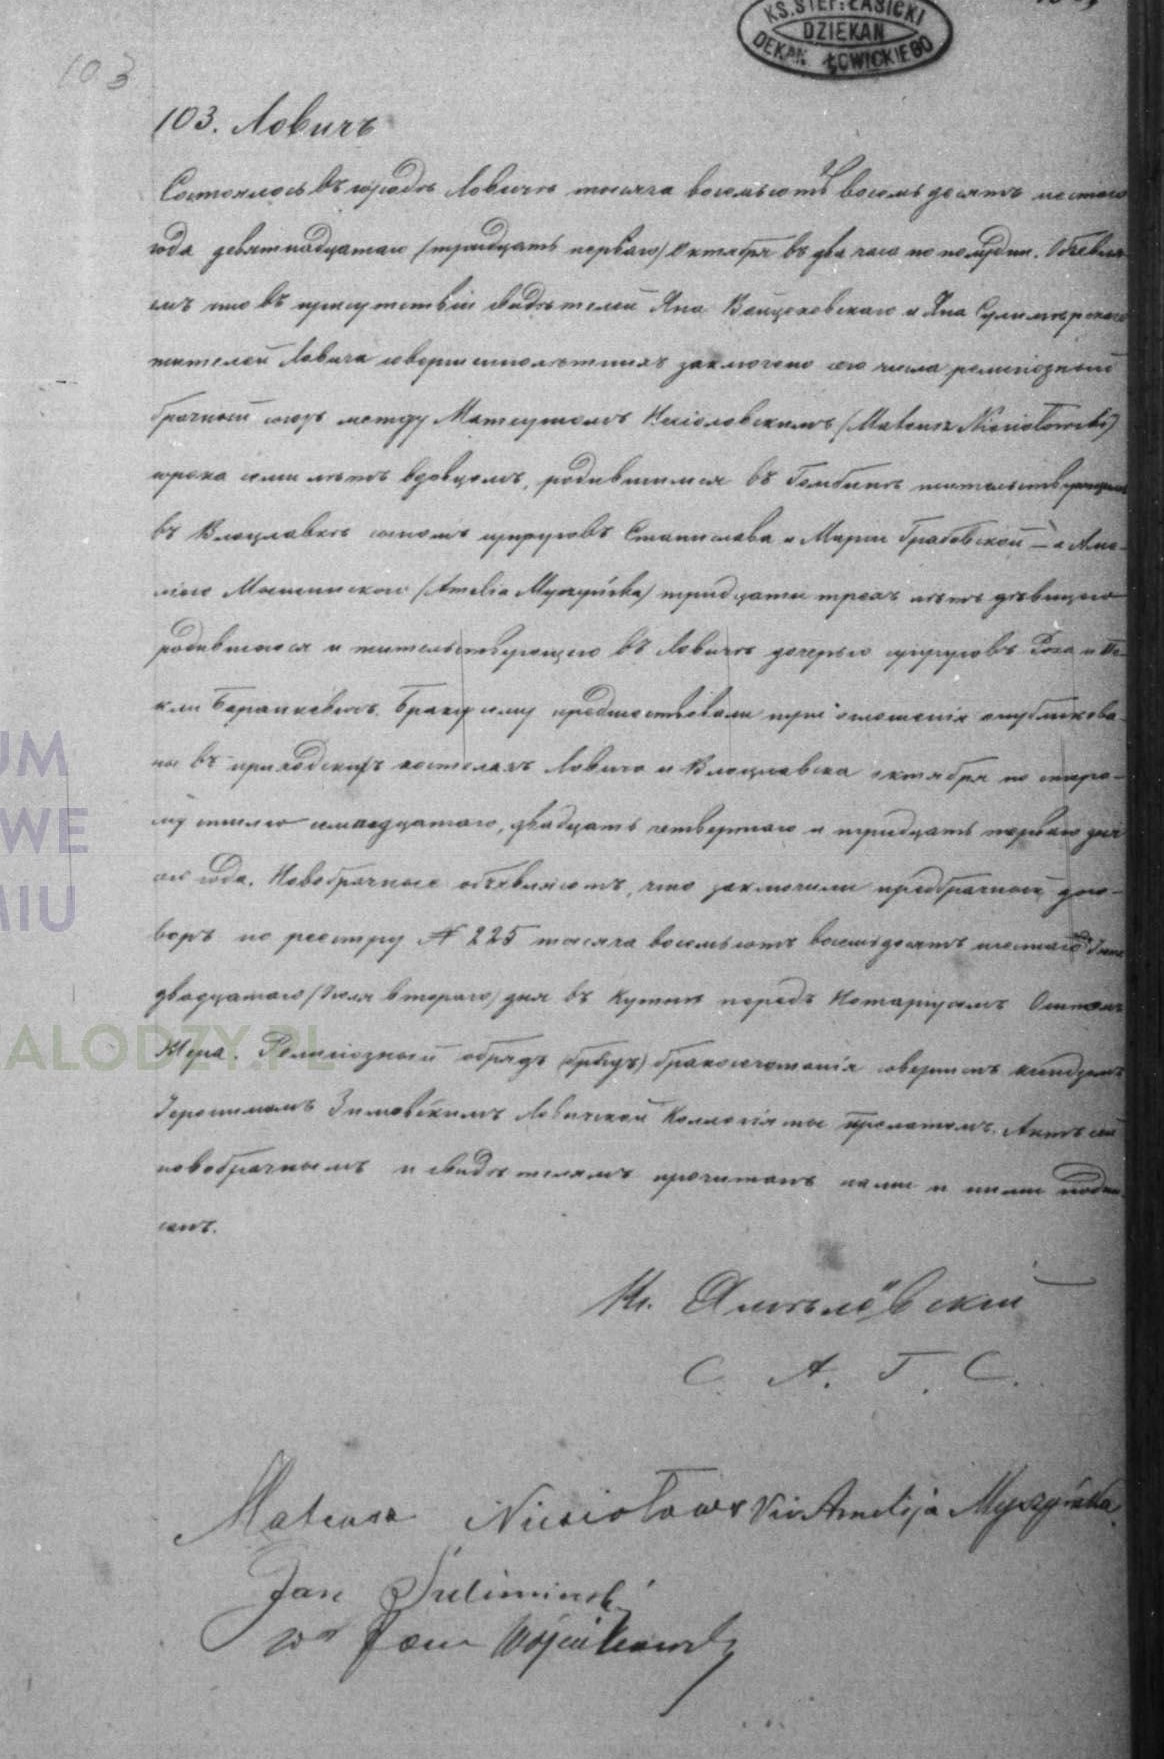 KS. STEF. ŁASICKI
DZIEKAN
DEKAN. ŁOWICKIEGO
103
103. Ловичъ
Состоялось въ городѣ Ловичѣ тысяча восемьсотъ восемьдесятъ шестаго
года девятнадцатаго /тридцать перваго/ Октября въ два часа по полудни. Объявля-
емъ что въ присутствіи свидѣтелей Яна Войцеховскаго и Яна
жителей Ловича совершеннолѣтнихъ заключено сего числа религіозный
брачный союзъ между Матеушомъ Несіоловскимъ /Mateusz Niesiołowski/
сорока семи лѣтъ вдовцомъ, родившимся въ Гомбинѣ жительствующимъ
въ Влоцлавкѣ сыномъ супруговъ Станислава и Маріи Грабовской — и Аме-
ліею Мышинскою /Amelia Myszyńska/ тридцати трехъ лѣтъ дѣвицею
родившеюся и жительствующею въ Ловичѣ дочерью супруговъ Роха и Те-
кли Баранкевичъ. Браку сему предшествовали три оглашенія опубликова-
ны въ приходскихъ костелахъ Ловича и Влоцлавска октября по старо-
му стилю семнадцатаго, двадцать четвертаго и тридцать перваго дня
сего года. Новобрачные объявляютъ, что заключили предбрачный дого-
воръ по реестру № 225 тысяча восемьсотъ восемьдесятъ шестаго Іюня
двадцатаго /Іюля втораго/ дня въ Кутнѣ передъ Нотаріусомъ
Религіозный обрядъ бракосочетанія совершенъ ксендзомъ
Іеронимомъ Ловичской Коллегіяты прелатомъ. Актъ сей
новобрачнымъ и свидѣтелямъ прочитанъ нами и ними подпи-
санъ.
Кс.
С. А. Г. С.
Mateusz Niesiołowski Amelija Myszyńska
Jan Sulimierski
Jan Wojciechowski
UM
WE
MIU
ALODZY.PL